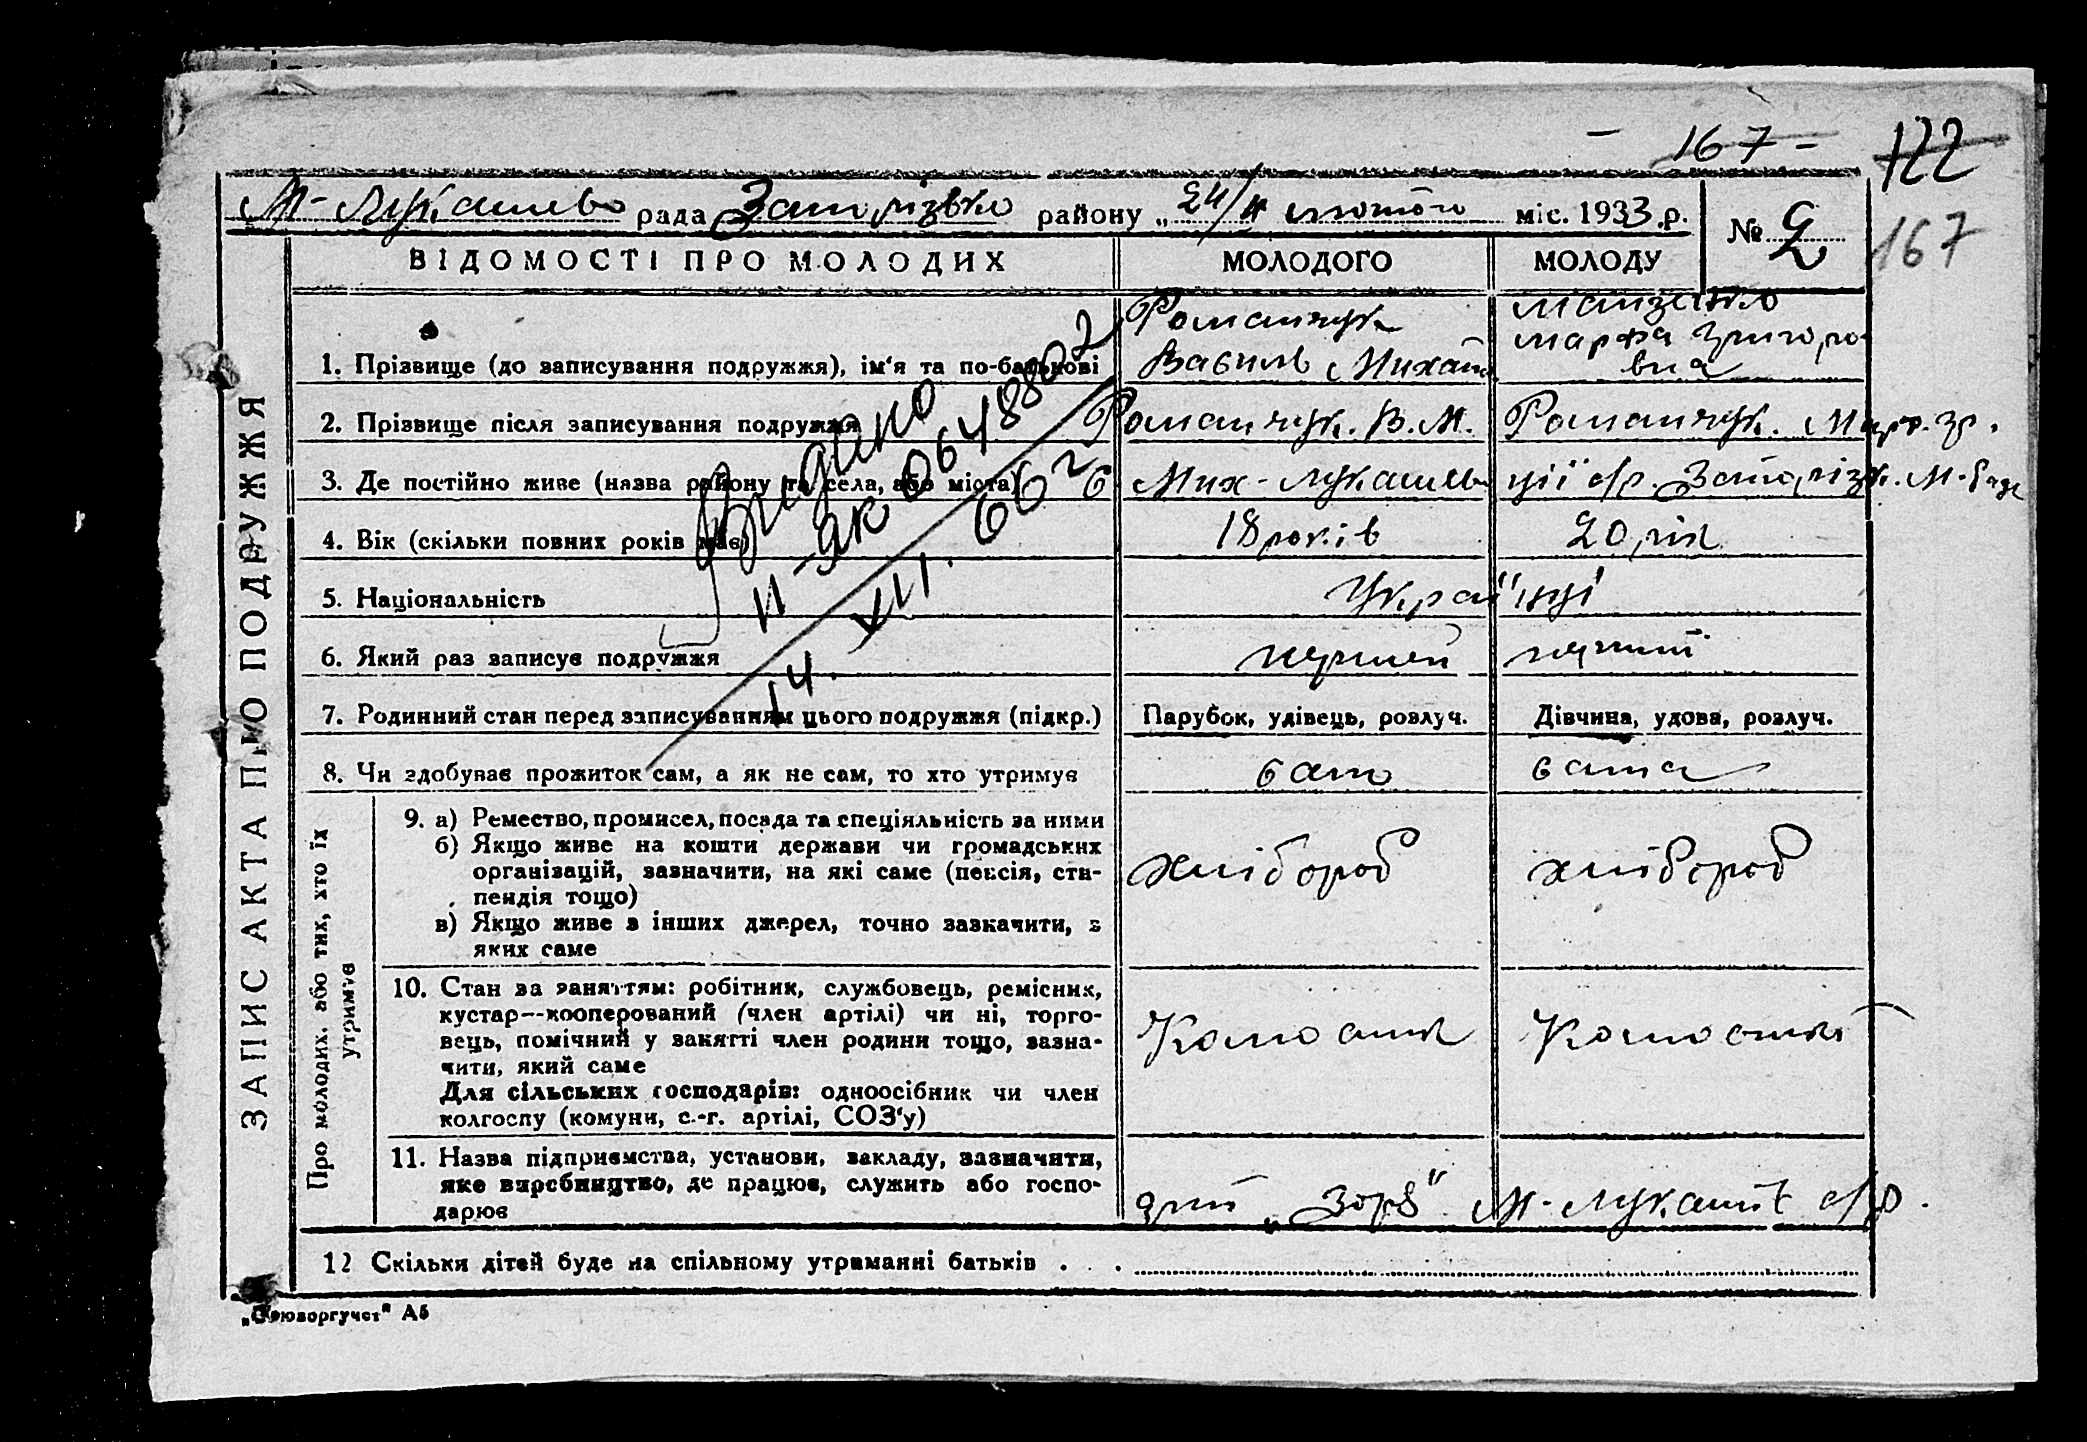 - 167 -
122
167
М-Лукашево рада Запорізько району „24/II лютого міс. 1933 р.
№ 2
ЗАПИС АКТА ПРО ПОДРУЖЖЯ
ВІДОМОСТІ ПРО МОЛОДИХ МОЛОДОГО МОЛОДУ
1. Прізвище (до записування подружжя), ім'я та по-батькові
Романчук
Василь Михайл
Марфа Григоро
вна
2. Прізвище після записування подружжя Романчук. В. М. Романчук. Марф. Гр.
3. Де постійно живе (назва району та села, або міста) Мих-Лукашев ції с/р. Запорізк.
4. Вік (скільки повних років має) 18 років 20 рік
5. Національність Українці
6. Який раз записує подружжя перший перший
7. Родинний стан перед записуванням цього подружжя (підкр.) Парубок, удівець, розлуч. Дівчина, удова, розлуч.
8. Чи здобуває прожиток сам, а як не сам, то хто утримує сам сама
Видано
II-ЯК 0648802
14. XII. 662
Про молодих, або тих, хто їх
утримує
9. а) Ремество, промисел, посада та спеціяльність за ними
б) Якщо живе на кошти держави чи громадських
організацій, зазначити, на які саме (пенсія, сти-
пендія тощо)
в) Якщо живе з інших джерел, точно зазначити, з
яких саме
хлібороб хлібороб
10. Стан за заняттям: робітник, службовець, ремісник,
кустар--кооперований (член артілі) чи ні, торго-
вець, помічний у занятті член родини тощо, зазна-
чити, який саме
Для сільських господарів: одноосібник чи член
колгоспу (комуни, с.-г. артілі, СОЗ'у)
11. Назва підприємства, установи, закладу, зазначити,
яке виробництво, де працює, служить або госпо-
дарює
„Зоря" М-Лукашів с/р.
12 Скільки дітей буде на спільному утриманні батьків . . .
„Союзоргучет" А5